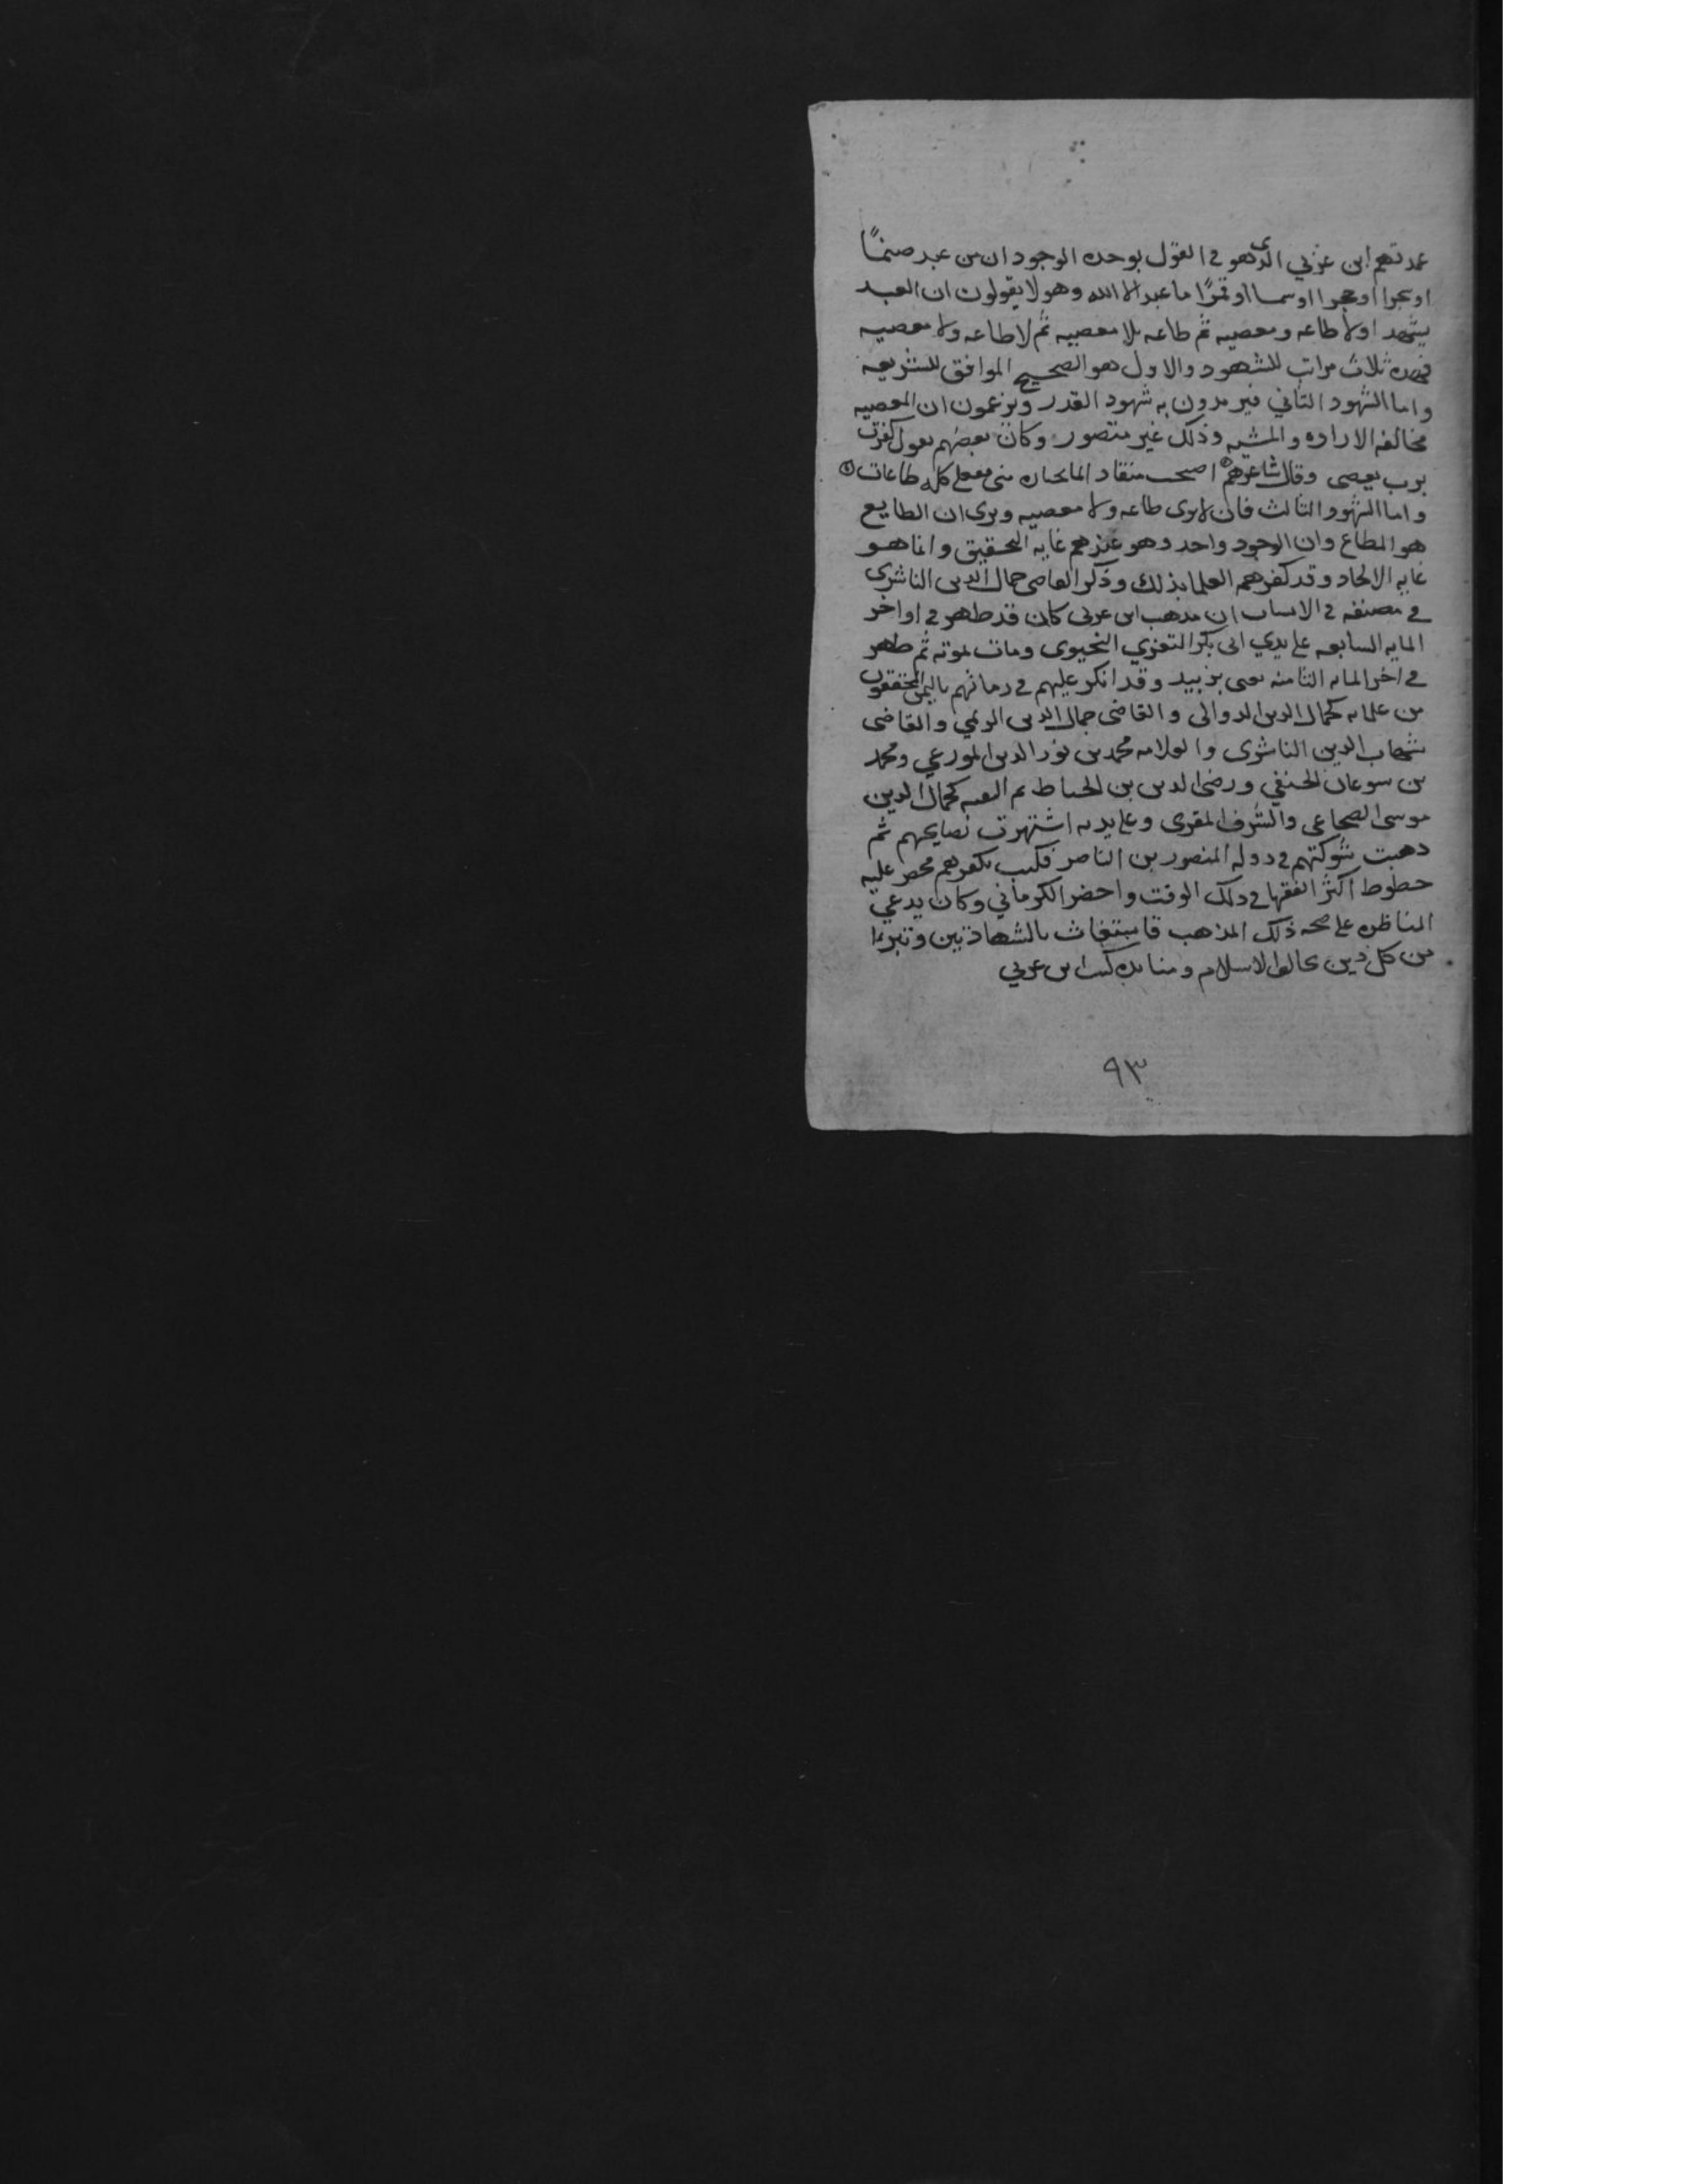 عمدتهم ابن عربي الذي هو في القول بوحده الوجود ان من عبد صنمًا
او شجرا او حجرا او شمسا او قمرًا ما عبد الا الله وهولا يقولون ان العبد
يشهد اولا طاعه ومعصيه ثم طاعه بلا معصيه ثم لا طاعه ولا معصيه
فهذه ثلاث مراتب للشهود والاول هو الصحيح الموافق للشريعه
واما الشهود الثاني فيريدون به شهود القدر ويزعمون ان المعصيه
مخالفه الاراده والمشيه وذلك غير متصور وكان بعضهم يقول كفرت
برب يعصى وقال شاعرهم اصبحت منقاد الما تختاره مني ففعلي كله طاعات
واما الشهود الثالث فان لا يرى طاعه ولا معصيه ويرى ان الطايع
هو المطاع وان الوجود واحد وهو عندهم غايه التحقيق وانما هو
غايه الالحاد وقد كفرهم العلما بذلك وذكر القاضى جمال الدين الناشرى
في مصنفه في الانساب ان مذهب ابن عربى كان قد ظهر في اواخر
المايه السابعه على يدي ابى بكر التعزي ومات بموته ثم ظهر
في اخر المايه الثامنه يعنى بزبيد وقد انكر عليهم في زمانهم باليمن المحققون
من علمايه كجمال الدين الدوالى والقاضى جمال الدين الريمي والقاضى
شهاب الدين الناشرى والعلامه محمد بن نور الدين الموزعي ومحمد
بن سوعان الحنفي ورضى الدين بن الخياط ثم الفقيه كجمال الدين
موسى الضجاعي والشرف المقرى وعلى يديه اشتهرت نصايحهم ثم
ذهبت شوكتهم في دوله المنصور بن الناصر فكتب بكفرهم محضر عليه
خطوط اكثر الفقها في ذلك الوقت واحضر الكرماني وكان يدعي
المناظره على صحه ذلك المذهب فاستغاث بالشهادتين وتبرا
من كل دين يخالف الاسلام ومنابذه كتب ابن عربي
٩٣